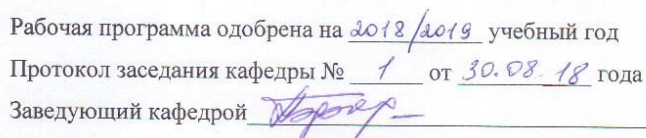 Рабочая программа одобрена на 2018/2019 учебный год
Протокол заседания кафедры № 1 от 30.08.18 года
Заведующий кафедрой